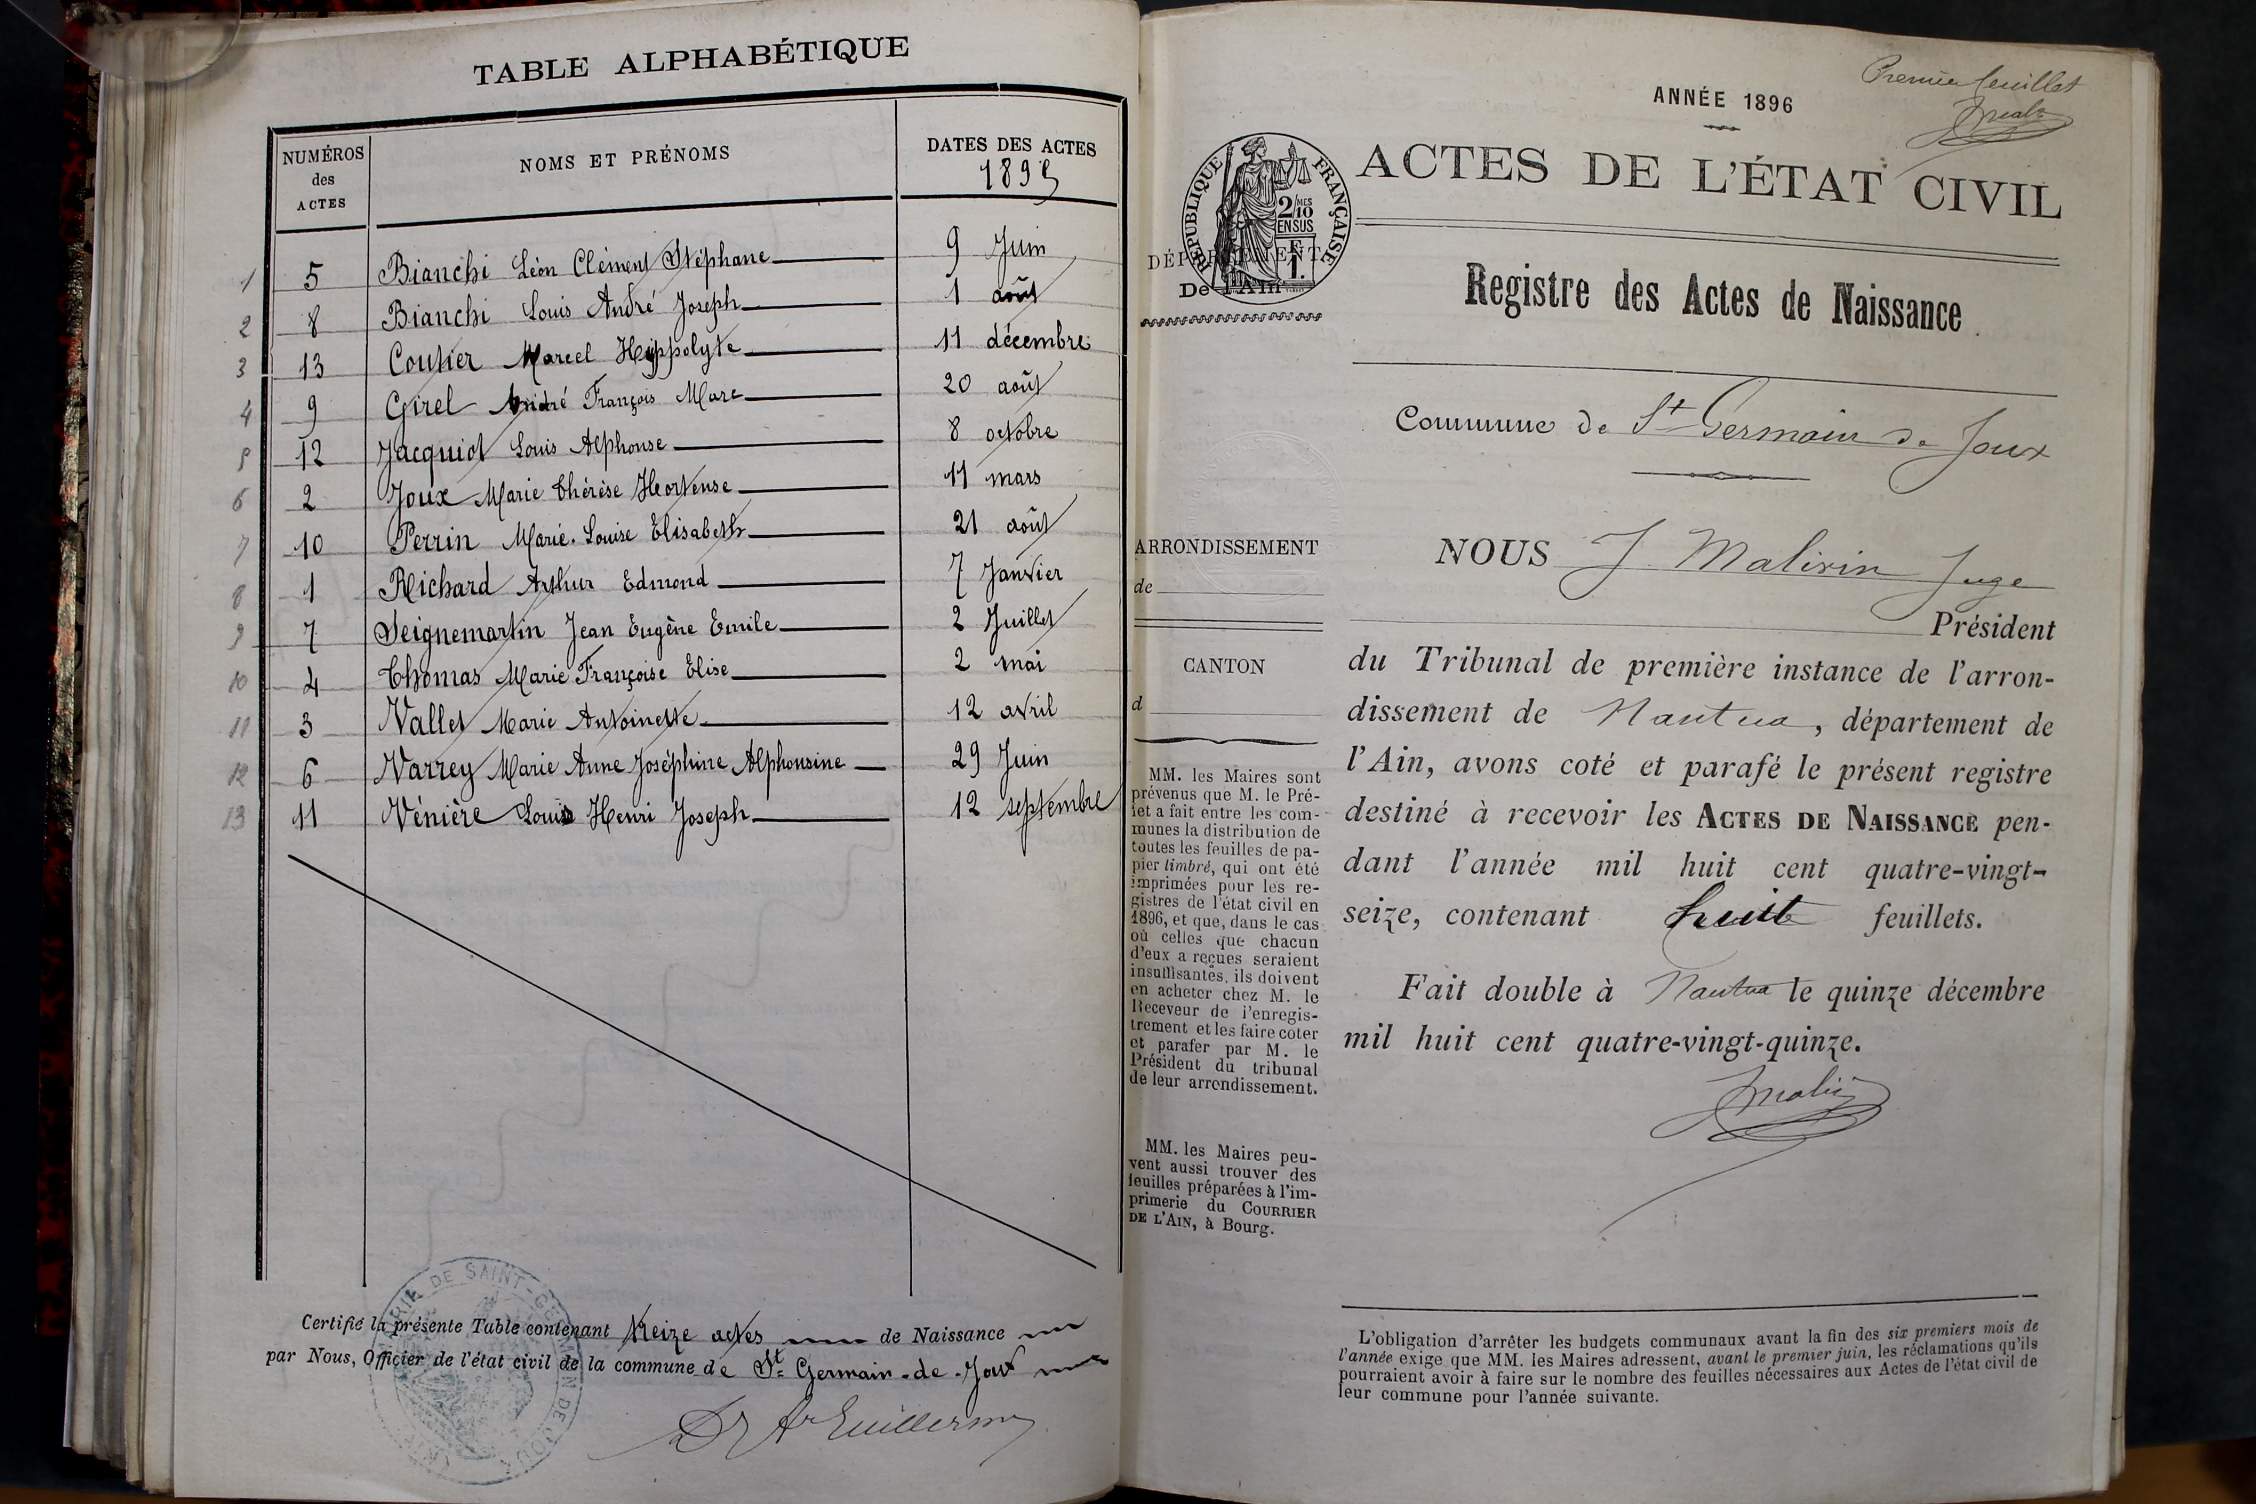 TABLE ALPHABÉTIQUE
NUMÉROS des ACTES
NOMS ET PRÉNOMS
DATES DES ACTES
1895
1 5 Bianchi Léon Clément Stéphane 9 Juin
2 8 Bianchi Louis André Joseph 1 août
3 13 Coutier Marcel Hyppolyte 11 décembre
4 9 Girel André François Marc 20 août
5 12 Jacquiot Louis Alphonse 8 octobre
6 2 Joux Marie Thérèse Hortense 11 mars
7 10 Perrin Marie-Louise Elisabeth 21 août
8 1 Richard Arthur Edmond 7 Janvier
9 7 Seignemartin Jean Eugène Emile 2 Juillet
10 4 Thomas Marie Françoise Elise 2 mai
11 3 Vallet Marie Antoinette 12 avril
12 6 Varrey Marie Anne Joséphine Alphonsine 29 Juin
13 11 Vénière Louis Henri Joseph 12 septembre
Certifié la présente Table contenant treize actes de Naissance
par Nous, Officier de l'état civil de la commune de St Germain-de-Joux
MAIRIE DE SAINT-GERMAIN DE JOUX
Dr Ar Guillermy
Premier feuillet
ANNÉE 1896
ACTES DE L'ÉTAT CIVIL
RÉPUBLIQUE FRANÇAISE
2/10 MES
EN SUS
F. 1.
DÉPARTEMENT
De l'Ain
Registre des Actes de Naissance
Commune de St Germain de Joux
ARRONDISSEMENT
de
CANTON
d
MM. les Maires sont
prévenus que M. le Pré-
fet a fait entre les com-
munes la distribution de
toutes les feuilles de pa-
pier timbré, qui ont été
imprimées pour les re-
gistres de l'état civil en
1896, et que, dans le cas
où celles que chacun
d'eux a reçues seraient
insuffisantes, ils doivent
en acheter chez M. le
Receveur de l'enregis-
trement et les faire coter
et parafer par M. le
Président du tribunal
de leur arrondissement.
MM. les Maires peu-
vent aussi trouver des
feuilles préparées à l'im-
primerie du COURRIER
DE L'AIN, à Bourg.
NOUS J. Malivin Juge
Président
du Tribunal de première instance de l'arron-
dissement de Nantua, département de
l'Ain, avons coté et parafé le présent registre
destiné à recevoir les ACTES DE NAISSANCE pen-
dant l'année mil huit cent quatre-vingt-
seize, contenant huit feuillets.
Fait double à Nantua le quinze décembre
mil huit cent quatre-vingt-quinze.
L'obligation d'arrêter les budgets communaux avant la fin des six premiers mois de
l'année exige que MM. les Maires adressent, avant le premier juin, les réclamations qu'ils
pourraient avoir à faire sur le nombre des feuilles nécessaires aux Actes de l'état civil de
leur commune pour l'année suivante.